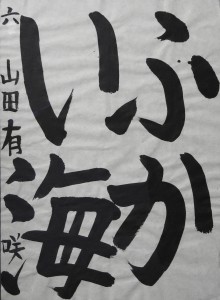 ふか
い海
六 山田有咲